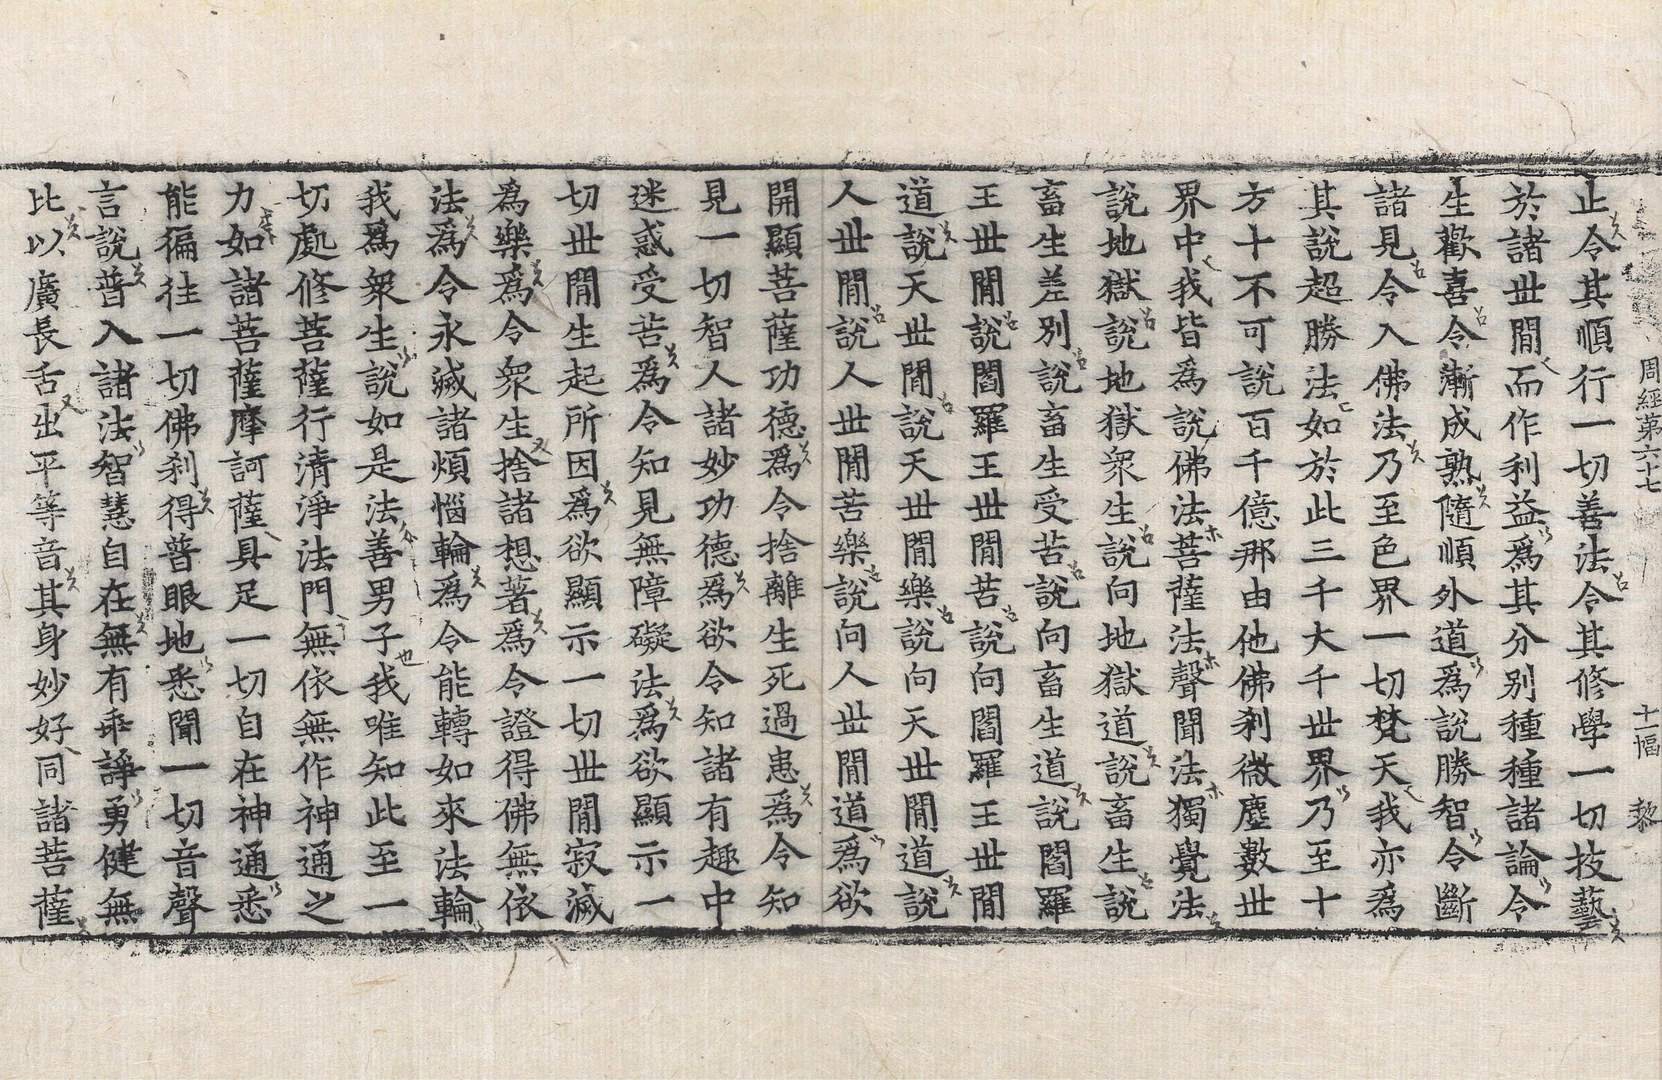 周經第六十七　十一幅　黎
止令其順行一切善法令其修學一切技藝
於諸丗閒而作利益爲其分別種種諸論令
生歡喜令漸成熟隨順外道爲說勝智令斷
諸見令入佛法乃至色界一切梵天我亦爲
其說超勝法如於此三千大千丗界乃至十
方十不可說百千億那由他佛刹微塵數丗
界中我皆爲說佛法菩薩法聲聞法獨覺法
說地獄說地獄衆生說向地獄道說畜生說
畜生差別說畜生受苦說向畜生道說閻羅
王丗閒說閻羅王丗閒苦說向閻羅王丗閒
道說天丗閒說天丗閒樂說向天丗閒道說
人丗閒說人丗閒苦樂說向人丗閒道爲欲
開顯菩薩功德爲令捨離生死過患爲令知
見一切智人諸妙功德爲欲令知諸有趣中
迷惑受苦爲令知見無障礙法爲欲顯示一
切丗閒生起所因爲欲顯示一切丗閒寂滅
爲樂爲令衆生捨諸想著爲令證得佛無依
法爲令永滅諸煩惱輪爲令能轉如來法輪
我爲衆生說如是法善男子我唯知此至一
切處修菩薩行清淨法門無依無作神通之
力如諸菩薩摩訶薩具足一切自在神通悉
能徧往一切佛刹得普眼地悉聞一切音聲
言說普入諸法智慧自在無有乖諍勇健無
比以廣長舌出平等音其身妙好同諸菩薩